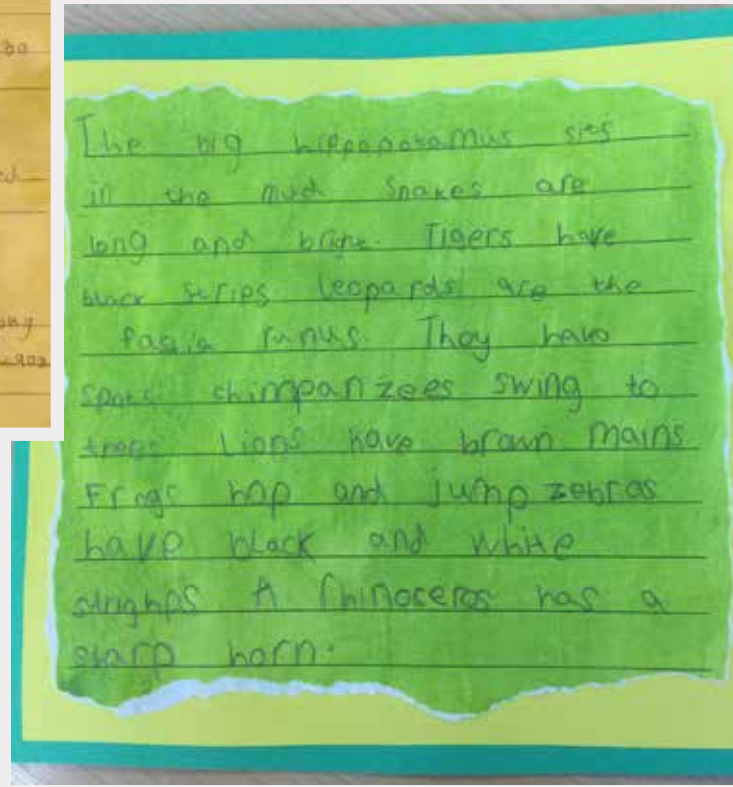 The big hippopotamus sits
in the mud Snakes are
long and bright. Tigers have
black strips leopards are the
runus. They have
spots chimpanzees swing to
trees Lions have brown mains
Frogs hop and jump zebras
have black and white
A rhinoceros has a
starp horn.